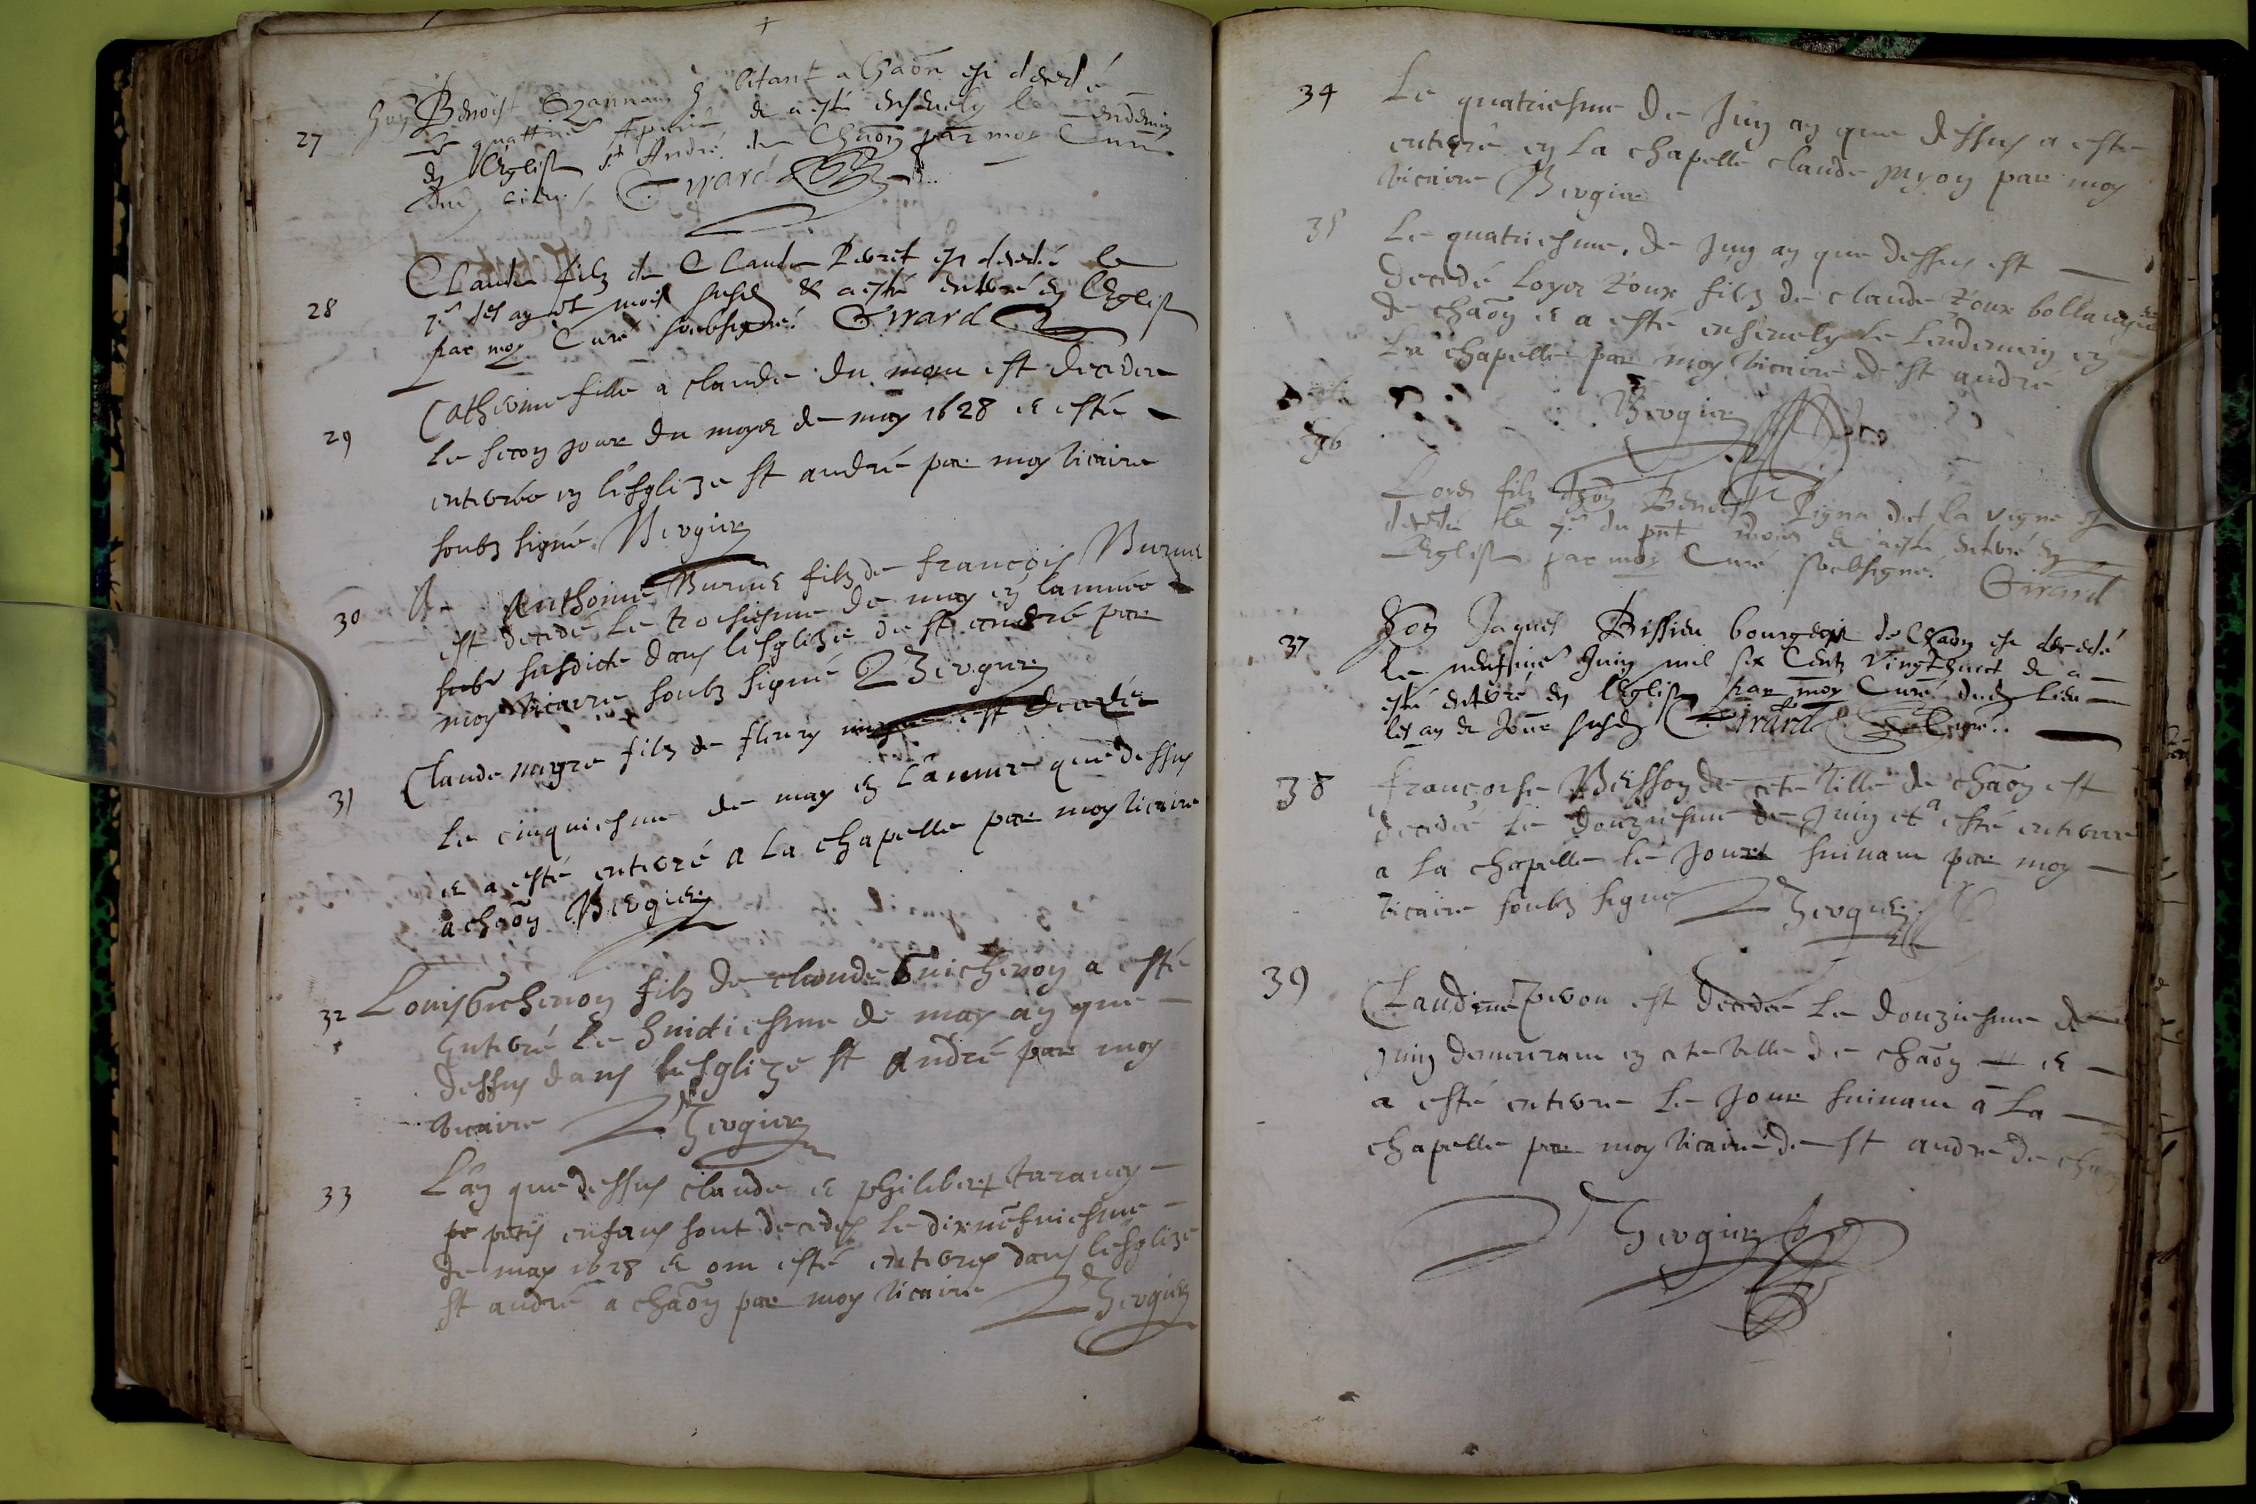 27
Benoist habitant a Chaōn est decedé
le quattre et a esté ensevely le lendemin
en l'Eglise St André de Chaōn par moy Curé
dud. lieu. Girard
28
Claude filz de Claude Peret est decedé le
7e des an et mois susd & a esté enterré en l'Eglise
par moy Curé soubsigné. Girard
29
Catherine fille a claude du est decedee
le secon jour du moys de may 1628 et esté
enterrée en lesglize st andré par moy vicaire
soubz signé. Bergier
30
Anthoine Burnet filz de françois Burnet
est decedé le troisiesme de may en lannée
susdicte dans lesglise de st andré par
moy vicaire soubz signé Bergier
31
Claude mogre filz de fleury est decedée
le cinquiesme de may en l'année que dessus
et a esté enterré a la chapelle par moy vicaire
a chaōn Bergier
32
Louis Guichenon filz de claude Guichenon a esté
Enterré le huictiesme de may an que
dessus dans lesglize st André par moy
vicaire Bergier
33
L'an que dessus claude et philibert
petis enfans sont decedes le dixneufviesme
de may 1628 et ont esté enterres dans lesglize
st andré a chaōn par moy vicaire Bergier
34
Le quatriesme de Juin an que dessus a esté
enterré en la chapelle claude myon par moy
vicaire Bergier
35
Le quatriesme de Juin an que dessus est
decedé Loys filz de claude bollangier
de chaōn et a esté ensevely le lendemein en
la chapelle par moy vicaire de st andré
Bergier
36
Loys filz Benoist Pigna dict la vigne est
decedé le 7e du pnt mois & a esté enterré en
l'Eglise par moy Curé soubsigné. Girard
37
Hon Jaques Bissieu bourgeois de Chaōn est decedé
le neufiesme Juin mil six Centz vingt huict & a
esté enterré en l'Eglise par moy Curé dud. lieu
les an & Jour susd. Girard Curé.
38
françoise Besson de cete ville de chaōn est
decedée le douziesme de Juin et a esté enterree
a la chapelle le Jour suivant par moy
vicaire soubz signé Bergier
39
Claudine est decedee le douziesme de
Juin demeurant en cete ville de chaōn et
a esté enterree le Jour suivant a la
chapelle par moy vicaire de st andre de
Bergier